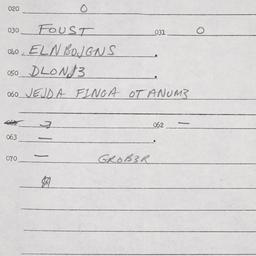 020 O
030 FOUST 031 O
040 ELNBOJGNS.
050 DLONJ3
060 JEJDA FINGA OT ANUM3
062 —
063 — .
070 — GROB3R